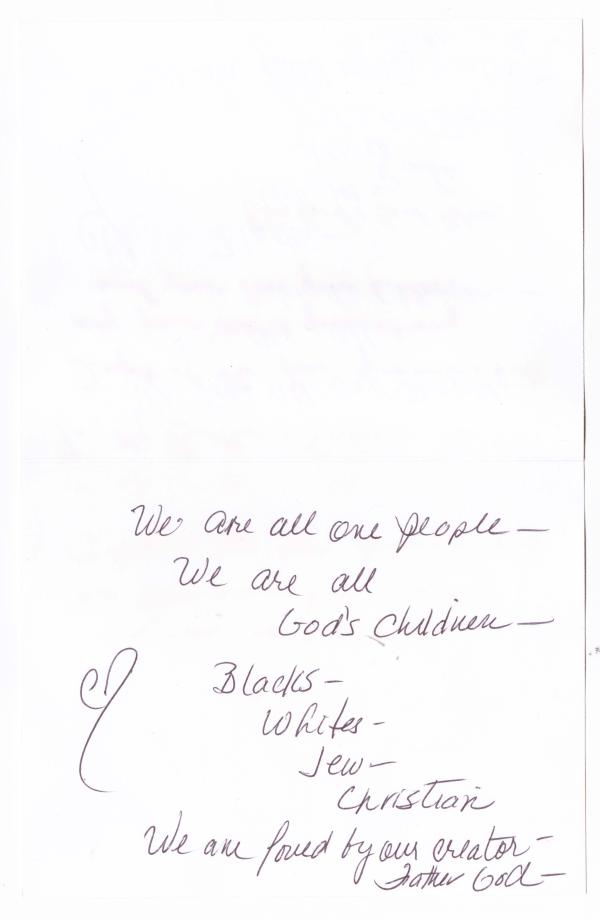 We are all one people —
We are all
God's Children —
Blacks -
Whites -
Jew -
Christian
We are loved by our creator -
Father God —